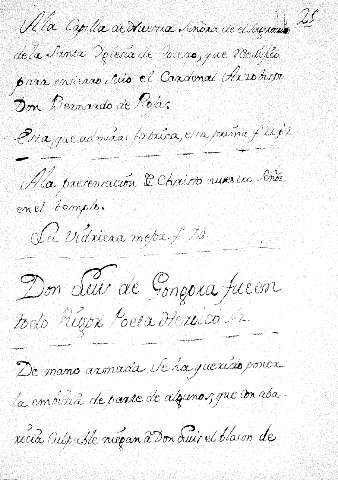 25
A la Capilla de Nuestra Señora de el Sagrario
de la Santa Iglesia de Toledo, que dedicó
para entierro suio el Cardenal Arzobispo
Don Bernardo de Rojas
Esta, que admiras fabrica, esta prima f. 22. p. 2
A la presentación de Christo nuestro Señor
en el templo.
La Vidriera mejor f.
Don Luis de Gongora fue en
todo rigor Poeta Heroico
De mano armada se ha querido poner
la embidia de parte de algunos, que con aba
ricia culpable niegan a Don Luis el blason de